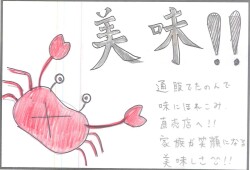 美味!!
通販でたのんで
味にほれこみ
直売店へ!!
家族が笑顔になる
美味しさな!!